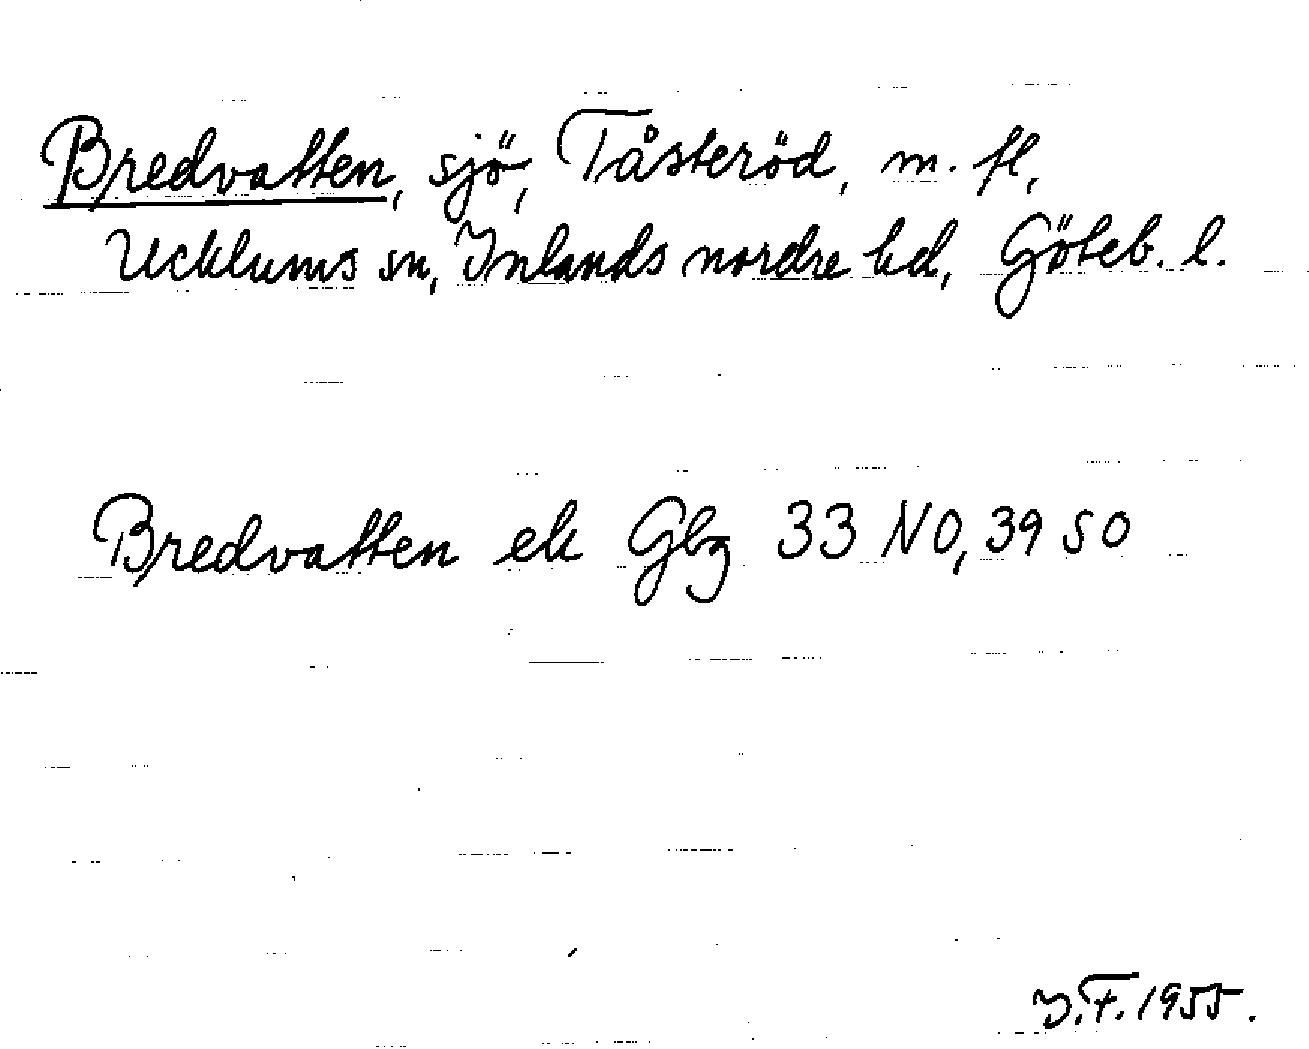 Bredvatten, sjö, Tåsteröd, m. fl,
Ucklums sn, Inlands nordre hd, Göteb. l.
Bredvatten ek Gbg 33 NO, 39 SO
I.F. 1955.